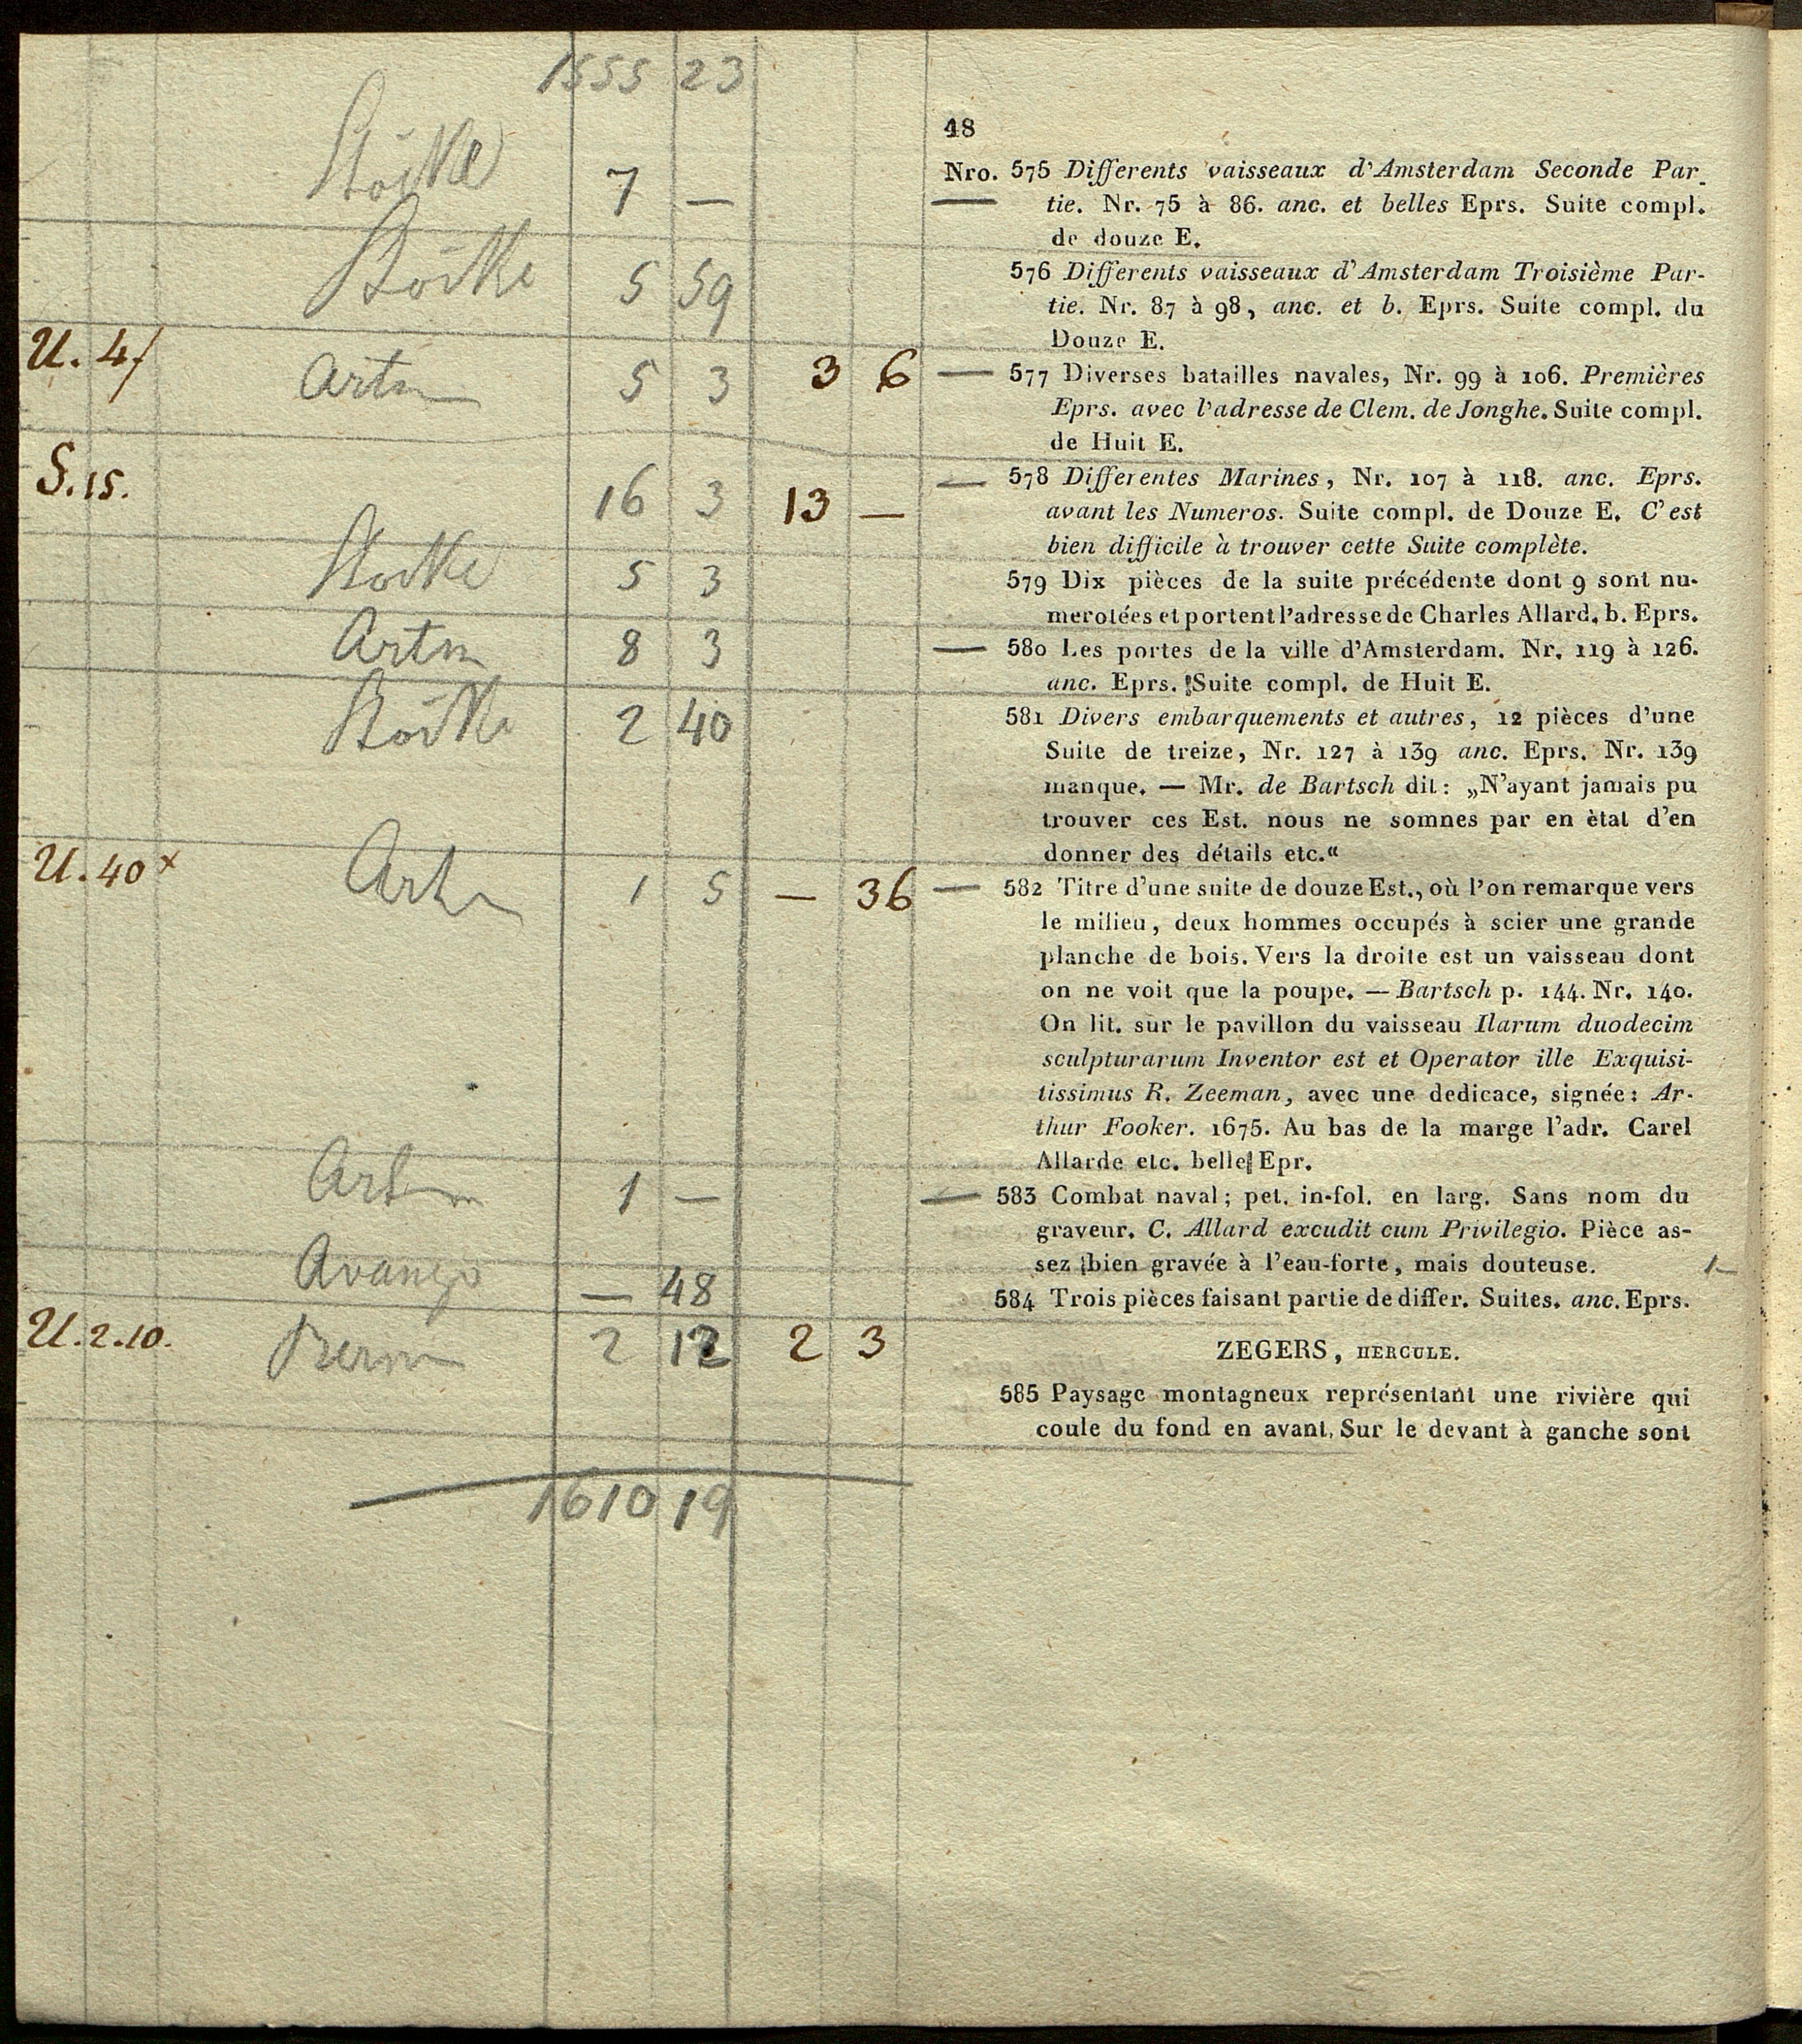 1555 23
48
Stöckl 7 —
Nro. 575 Differents vaisseaux d'Amsterdam Seconde Par-
tie. Nr. 75 à 86. anc. et belles Eprs. Suite compl.
de douze E.
5 59
576 Differents vaisseaux d'Amsterdam Troisième Par-
tie. Nr. 87 à 98, anc. et b. Eprs. Suite compl. du
Douze E.
U. 4/ Artm 5 3 3 6 —
577 Diverses batailles navales, Nr. 99 à 106. Premières
Eprs. avec l'adresse de Clem. de Jonghe. Suite compl.
de Huit E.
S. 15. 16 3 13 — —
578 Differentes Marines, Nr. 107 à 118. anc. Eprs.
avant les Numeros. Suite compl. de Douze E. C'est
bien difficile à trouver cette Suite complète.
5 3
579 Dix pièces de la suite précédente dont 9 sont nu-
merotées et portent l'adresse de Charles Allard. b. Eprs.
Artm 8 3 —
580 Les portes de la ville d'Amsterdam. Nr. 119 à 126.
anc. Eprs. Suite compl. de Huit E.
2 40
581 Divers embarquements et autres, 12 pièces d'une
Suite de treize, Nr. 127 à 139 anc. Eprs. Nr. 139
manque. — Mr. de Bartsch dit: „N'ayant jamais pu
trouver ces Est. nous ne somnes par en ètat d'en
donner des détails etc.“
U. 40 x Artm 1 5 — 36 —
582 Titre d'une suite de douze Est., où l'on remarque vers
le milieu, deux hommes occupés à scier une grande
planche de bois. Vers la droite est un vaisseau dont
on ne voit que la poupe. — Bartsch p. 144. Nr. 140.
On lit. sur le pavillon du vaisseau Ilarum duodecim
sculpturarum Inventor est et Operator ille Exquisi-
tissimus R. Zeeman, avec une dedicace, signée: Ar-
thur Fooker. 1675. Au bas de la marge l'adr. Carel
Allarde etc. belle Epr.
Artm 1 — —
583 Combat naval; pet. in-fol. en larg. Sans nom du
graveur. C. Allard excudit cum Privilegio. Pièce as-
sez bien gravée à l'eau-forte, mais douteuse. 1—
— 48
584 Trois pièces faisant partie de differ. Suites. anc. Eprs.
U. 2.10. 2 12 2 3
ZEGERS, HERCULE.
585 Paysage montagneux représentant une rivière qui
coule du fond en avant. Sur le devant à ganche sont
1610 19